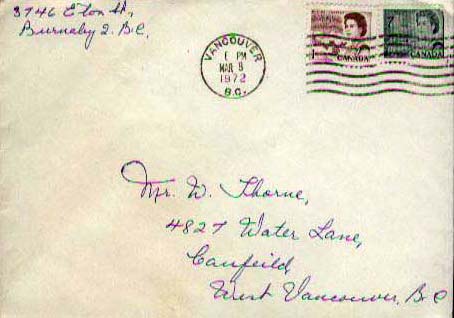 3746 Eton St.,
Burnaby 2. B.C.
VANCOUVER
PM
MAR 8
1972
B.C.
1
CANADA
7
CANADA
Mr. W. Thorne,
4827 Water Lane,
Caufeild,
West Vancouver, B.C